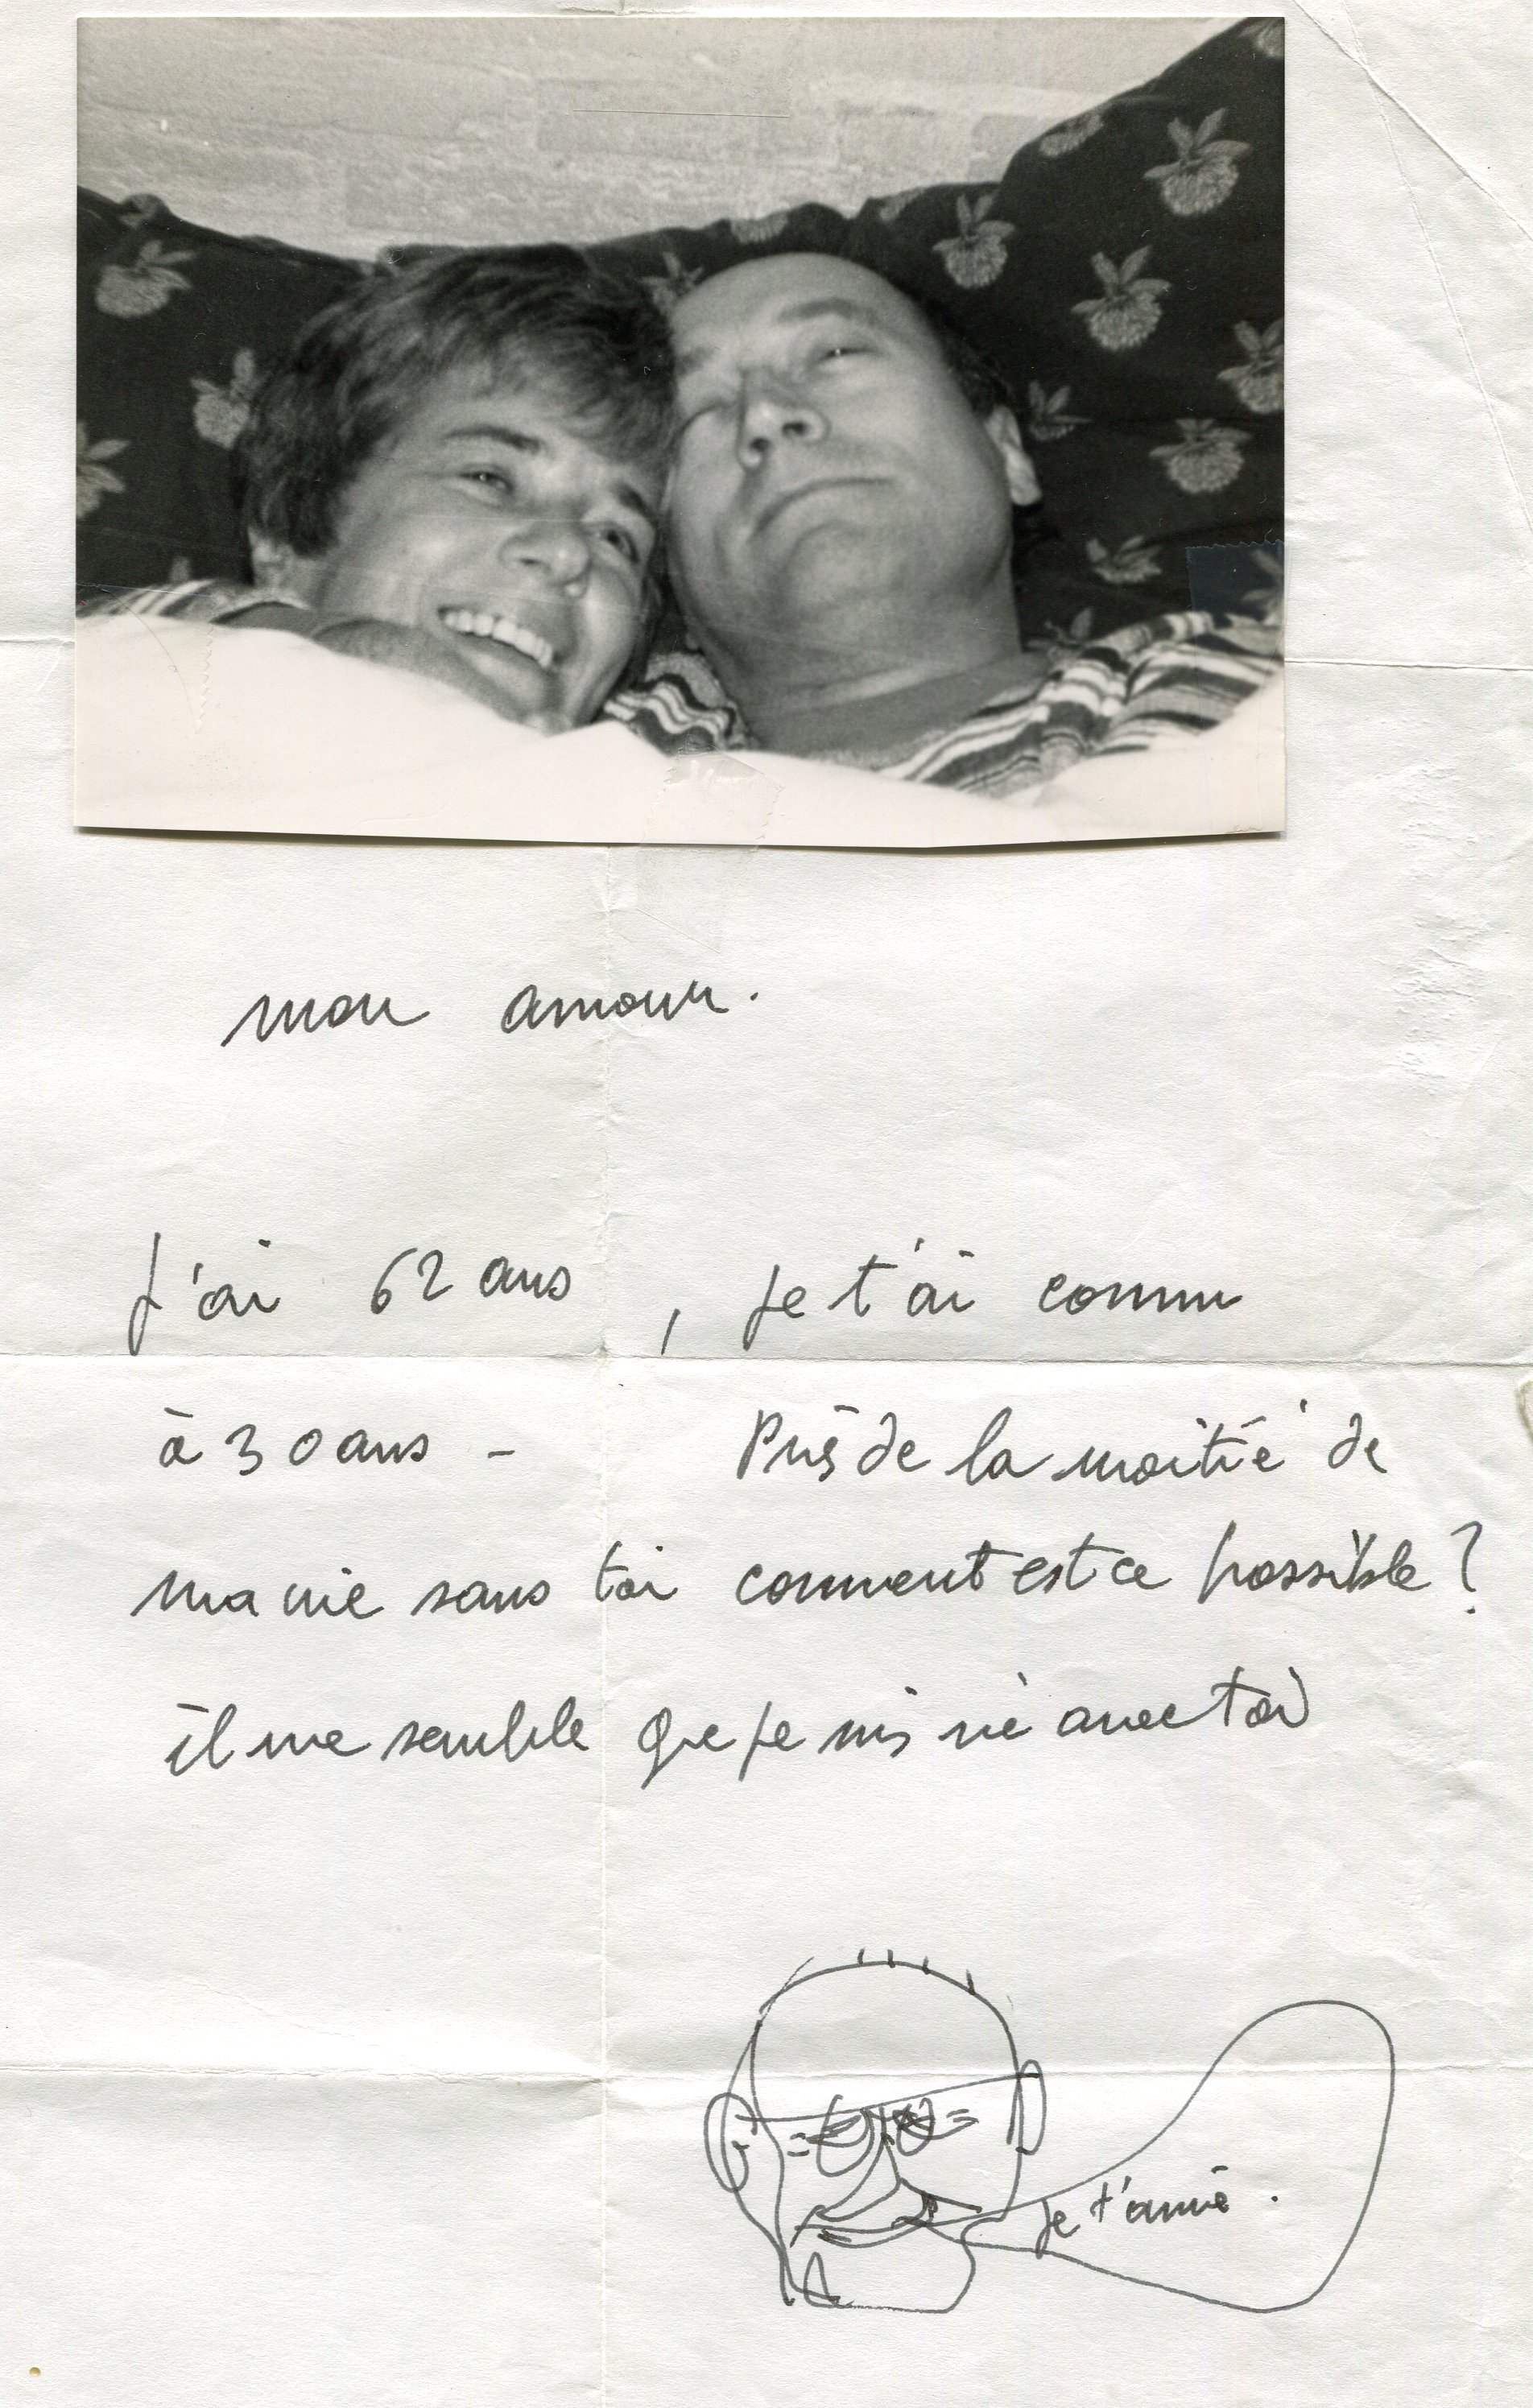 mon amour.
J'ai 62 ans, je t'ai connu
à 30 ans - Près de la moitié de
ma vie sans toi comment est ce possible ?
il me semble que je suis né avec toi
je t'aime.